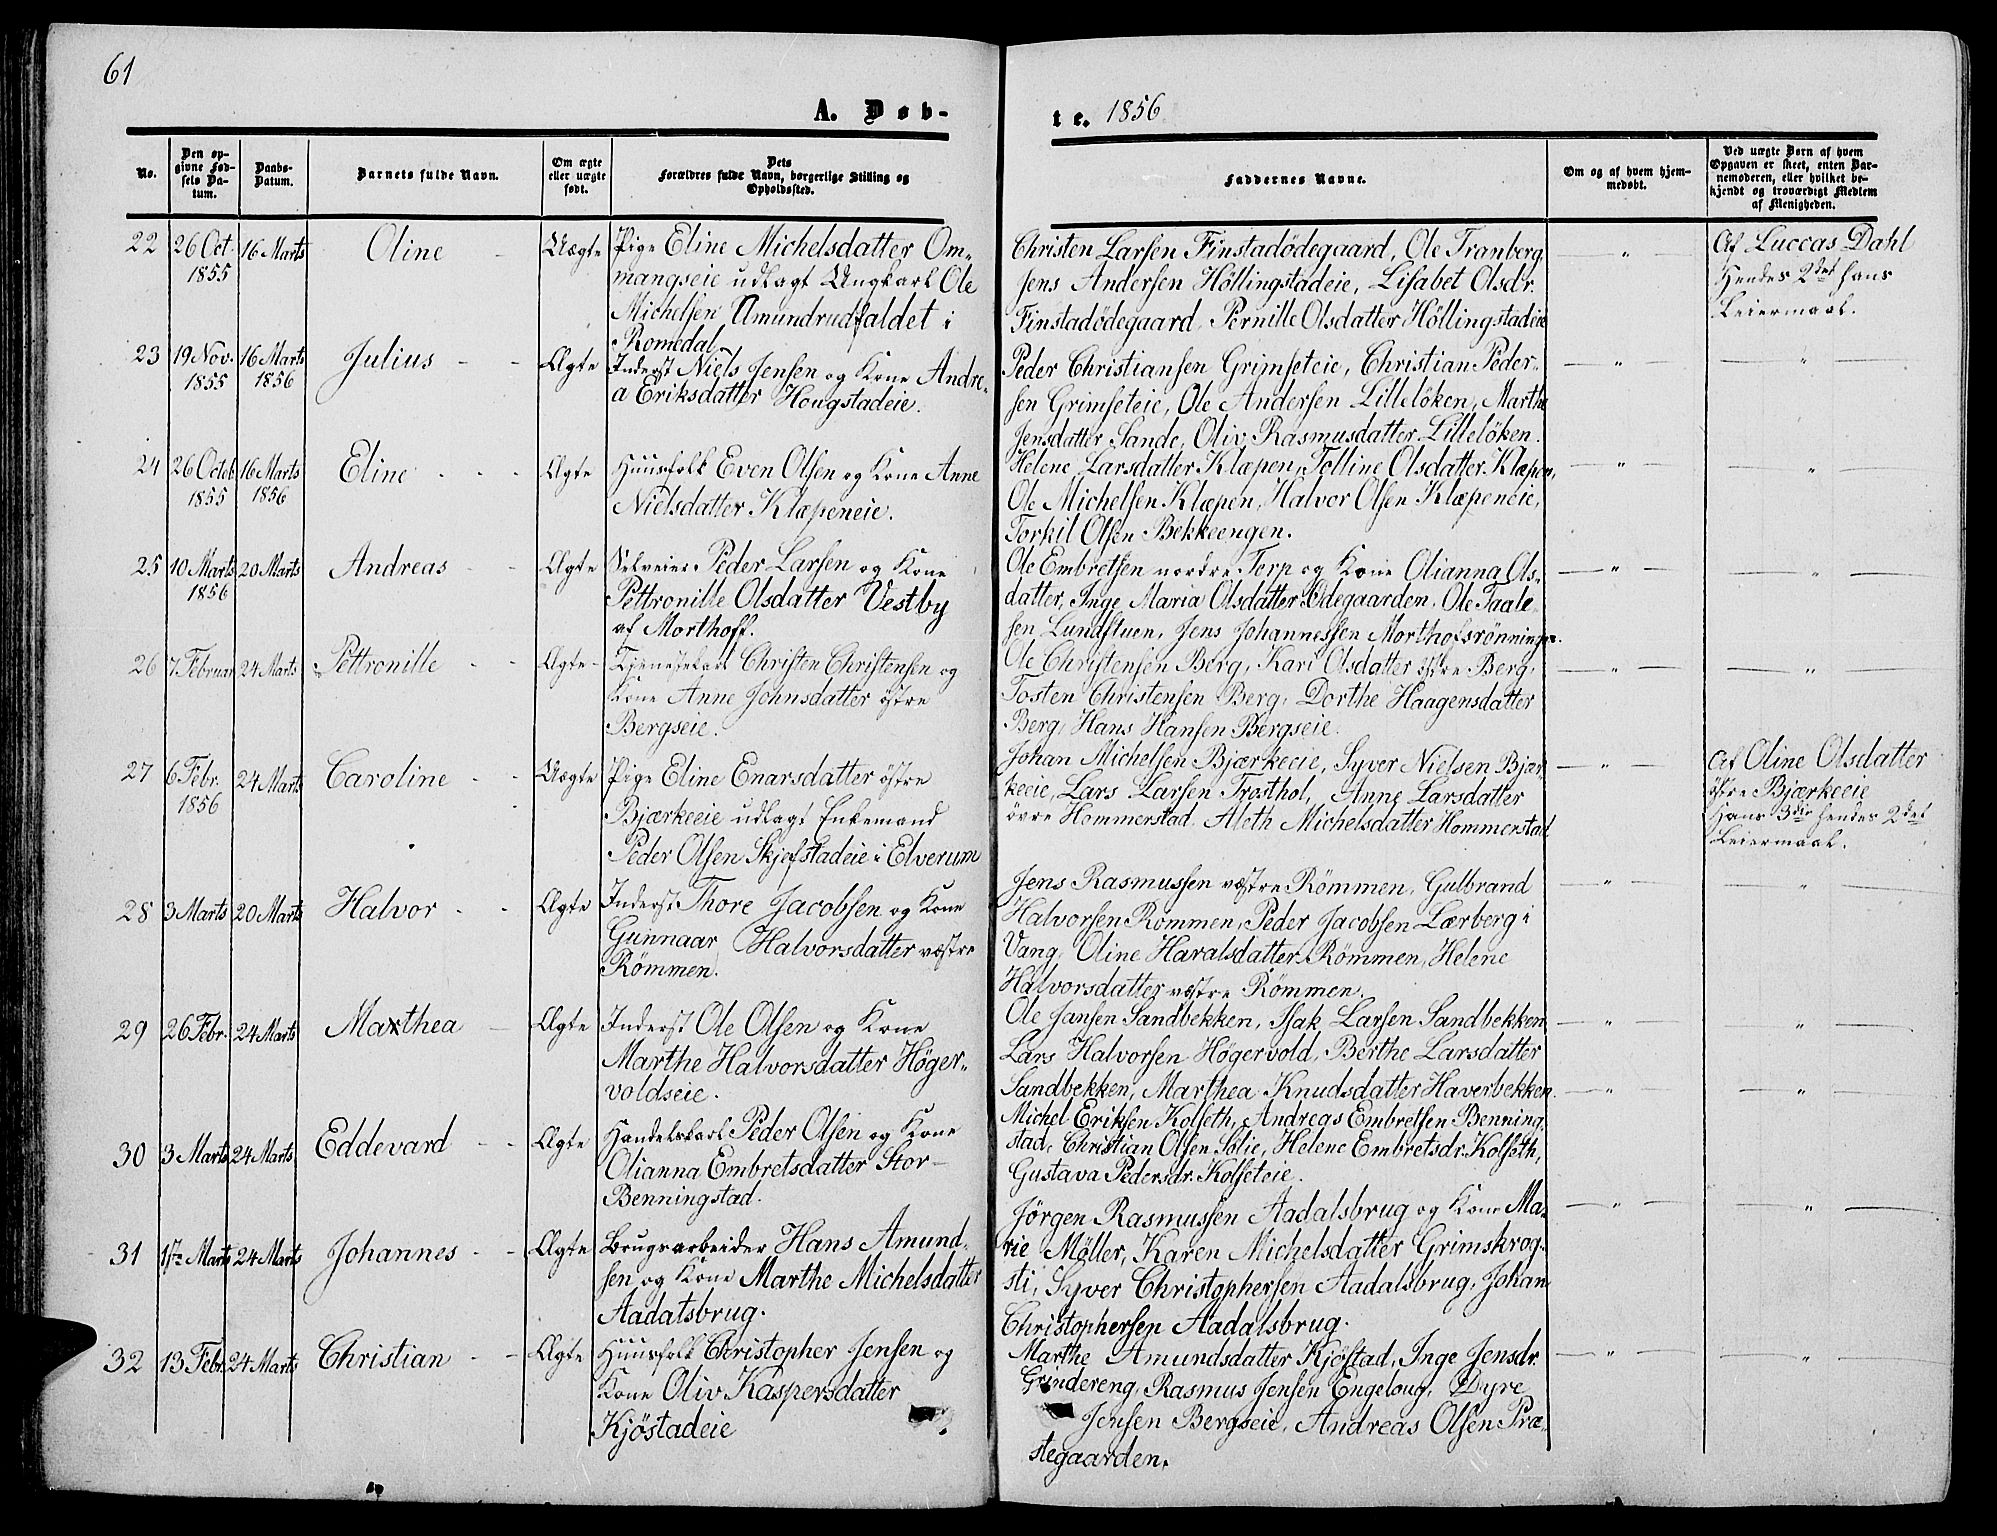 61
A. Døb-
te. 1856
No.
Den op-
givne Fød-
sels Da-
tum.
Daabs-
Datum.
Barnets fulde Navn.
Om ægte
eller uægte
født.
Dets
Forældres fulde Navn, borgerlige Stilling og
Opholdssted.
Faddernes Navne.
Om og af hvem hjem-
medøbt.
Ved uægte Børn af hvem
Opgaven er skeet, enten Bar-
nemoderen, eller hvilket be-
kjendt og troværdigt Medlem
af Menigheden.
22 26 Oct. 1855 16 Marts Oline Uægte
Pige Eline Michelsdatter Om-
mangseie udlagt Ungkarl Ole
Michelsen Amundrudfaldet i
Romedal
Christen Larsen Finstadödegaard, Ole Tranberg,
Jens Andersen Höllingstadeie, Lisabet Olsdr.
Finstadödegaard, Pernille Olsdatter Höllingstadeie
Af Luccas Dahl
Hendes 2det hans
Leiermaal.
23 19 Nov. 1855 16 Marts 1856 Julius Ægte
Inderst Niels Jensen og Kone Andre-
a Eriksdatter Hougstadeie.
Peder Christiansen Grimseteie, Christian Peder-
sen Grimseteie, Ole Andersen Lilleløken, Marthe
Jensdatter Sande, Oliv Rasmusdatter Lilleløken.
24 26 Octob 1855 16 Marts 1856 Eline Ægte
Huusfolk Even Olsen og Kone Anne
Nielsdatter Klæpeneie.
Helene Larsdatter Klæpen, Tolline Olsdatter Klæpen,
Ole Michelsen Klæpen, Halvor Olsen Klæpeneie,
Torkil Olsen Bekkeengen.
25 10 Marts 1856 20 Marts Andreas Ægte
Selveier Peder Larsen og Kone
Pettronille Olsdatter Vestby
af Morthoff.
Ole Embretsen nordre Terp og Kone Olianna Ols-
datter, Inge Maria Olsdatter Ödegaarden, Ole Taale-
sen Lundstuen, Jens Johannessen Mortholsrønningen.
26 7 Februar 24 Marts Pettronille Ægte
Tjenestekarl Christen Christensen og
Kone Anne Johnsdatter östre
Bergseie.
Ole Christensen Berg, Kari Olsdatter östre Berg,
Tosten Christensen Berg, Dorthe Haagensdatter
Berg, Hans Hansen Bergseie.
27 6 Febr. 1856 24 Marts Caroline Uægte
Pige Eline Enarsdatter östre
Bjærkeeie udlagt Enkemand
Peder Olsen Skjefstadeie i Elverum
Johan Michelsen Bjærkeeie, Syver Nielsen Bjær-
keeie, Lars Larsen Trosthol, Anne Larsdatter
övre Hommerstad, Aleth Michelsdatter Hommerstad
Af Oline Olsdatter
östre Bjærkeeie
Hans 3die hendes 2det
Leiermaal.
28 3 Marts 20 Marts Halvor Ægte
Inderst Thore Jacobsen og Kone
Gunnaar Halvorsdatter væstre
Römmen.
Jens Rasmussen væstre Römmen, Gulbrand
Halvorsen Rommen, Peder Jacobsen Lærberg i
Vang, Oline Haralsdatter Römmen, Helene
Halvorsdatter væstre Römmen.
29 26 Febr. 24 Marts Marthea Ægte
Inderst Ole Olsen og Kone
Marthe Halvorsdatter Höger-
voldseie.
Ole Jansen Sandbekken, Isak Larsen Sandbekken
Lars Halvorsen Högervold, Berthe Larsdatter
Sandbekken, Marthea Knudsdatter Haverbekken.
30 3 Marts 24 Marts Eddevard Ægte
Handelskarl Peder Olsen og Kone
Olianna Embretsdatter Stor-
Benningstad.
Michel Eriksen Kolseth, Andreas Embretsen Benning-
stad, Christian Olsen Solie, Helene Embretsdr. Kolseth,
Gustava Pedersdr. Kolseteie.
31 1ste Marts 24 Marts Johannes Ægte
Brugsarbeider Hans Amund-
sen og Kone Marthe Michelsdatter
Aadalsbrug.
Jørgen Rasmussen Aadalsbrug og Kone Ma-
rie Möller, Karen Michelsdatter Grimskrog-
sti, Syver Christophersen Aadalsbrug, Johan
Christophersen Aadalsbrug.
32 13 Febr. 24 Marts Christian Ægte
Huusfolk Christopher Jensen og
Kone Oliv Kaspersdatter
Kjöstadeie
Marthe Amundsdatter Kjöstad, Inge Jensdr.
Grindereng, Rasmus Jensen Engeloug, Dyre
Jensen Bergseie, Andreas Olsen Præ-
stegaarden.